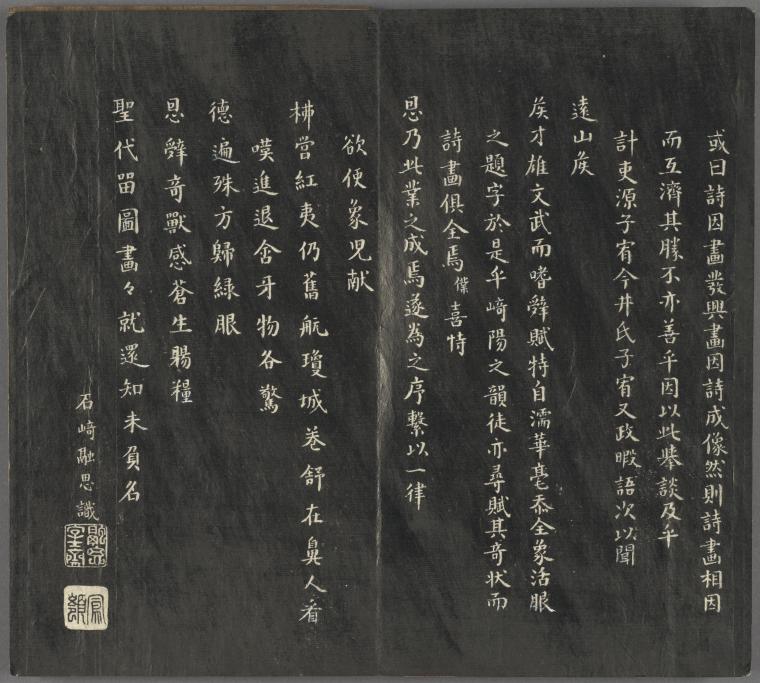 或曰詩因畫發興畫因詩成像然則詩畫相因
而互濟其勝不亦善乎因以此舉談及乎
計吏源子宥今井氏子宥又政暇語次以聞
遠山矦
矦才雄文武而嗜辤賦特自濡華毫忝全象活眼
之題字於是乎崎陽之韻徒亦尋賦其奇状而
詩畫俱全焉僕喜特
恩乃此業之成焉遂為之序繫以一律
欲使象児献
柫嘗紅夷仍舊航瓊城巻舒在鼻人看
嘆進退含牙物各驚
德遍殊方歸綠眼
恩辤奇獸感蒼生賜糧
聖代留圖畫々就還知未負名
石崎融思識